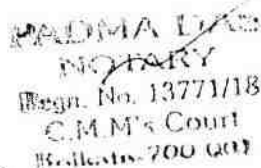 PADMA DAS
NOTARY
Regn. No. 13771/18
C.M.M's Court
Kolkata-700 001